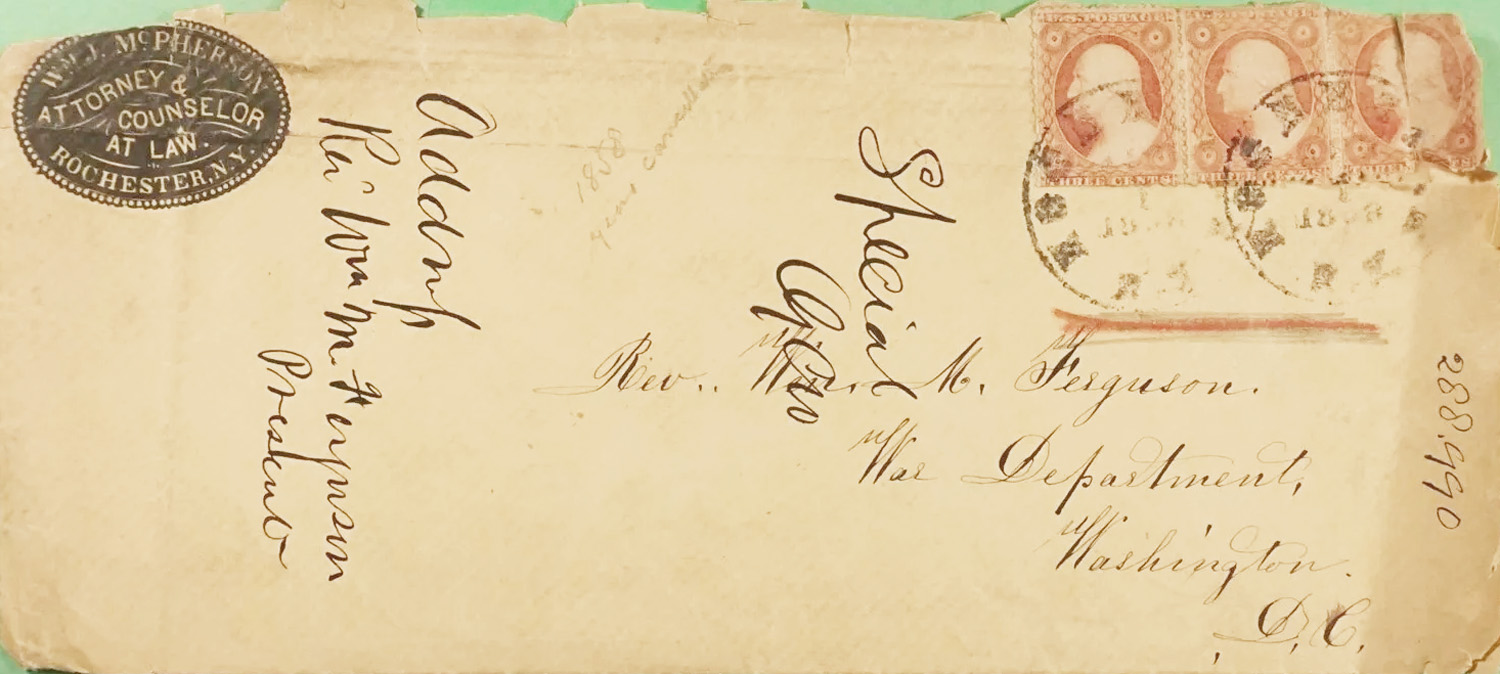 WM. J. McPHERSON
ATTORNEY &
COUNSELOR
AT LAW.
ROCHESTER, N.Y.
U.S. POSTAGE
THREE CENTS
THREE CENTS
THREE
Address
Rev Wm M. Ferguson
Present
1858
Special
Rev. Wm. M. Ferguson.
War Department,
Washington.
D. C.
288.990